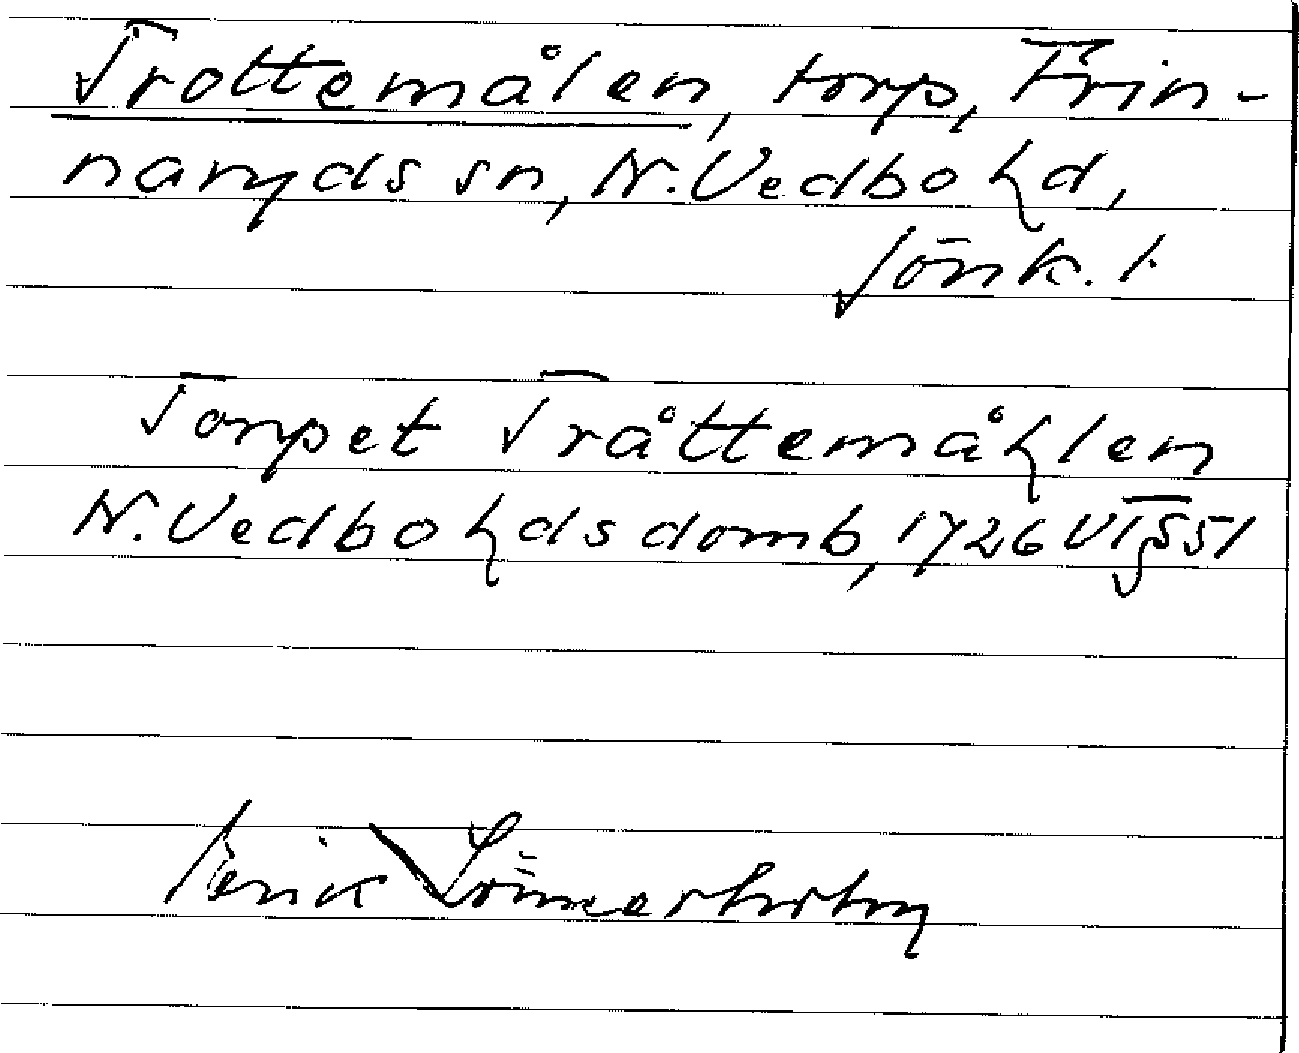 Trottemålen, torp, Frin-
naryds sn, N. Vedbo hd,
Jönk. l.
Torpet Tråttemåhlen
N. Vedbo hds domb, 1726 VI § 51
Erik Lönnerholm